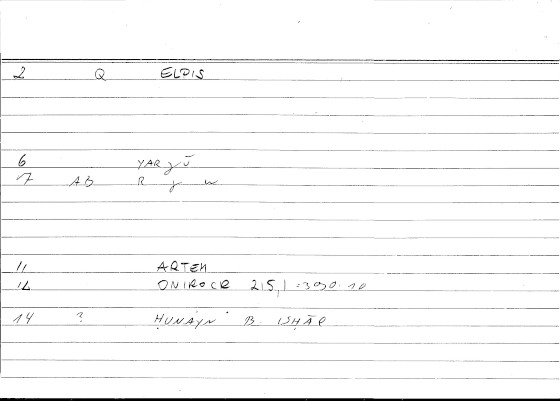 2 Q ELPIS
6 YARJŪ
7 AB R J W
11 ARTEM
12 ONIROCR 215,1 = 390.10
14 ? ḤUNAYN B. ISḤĀQ